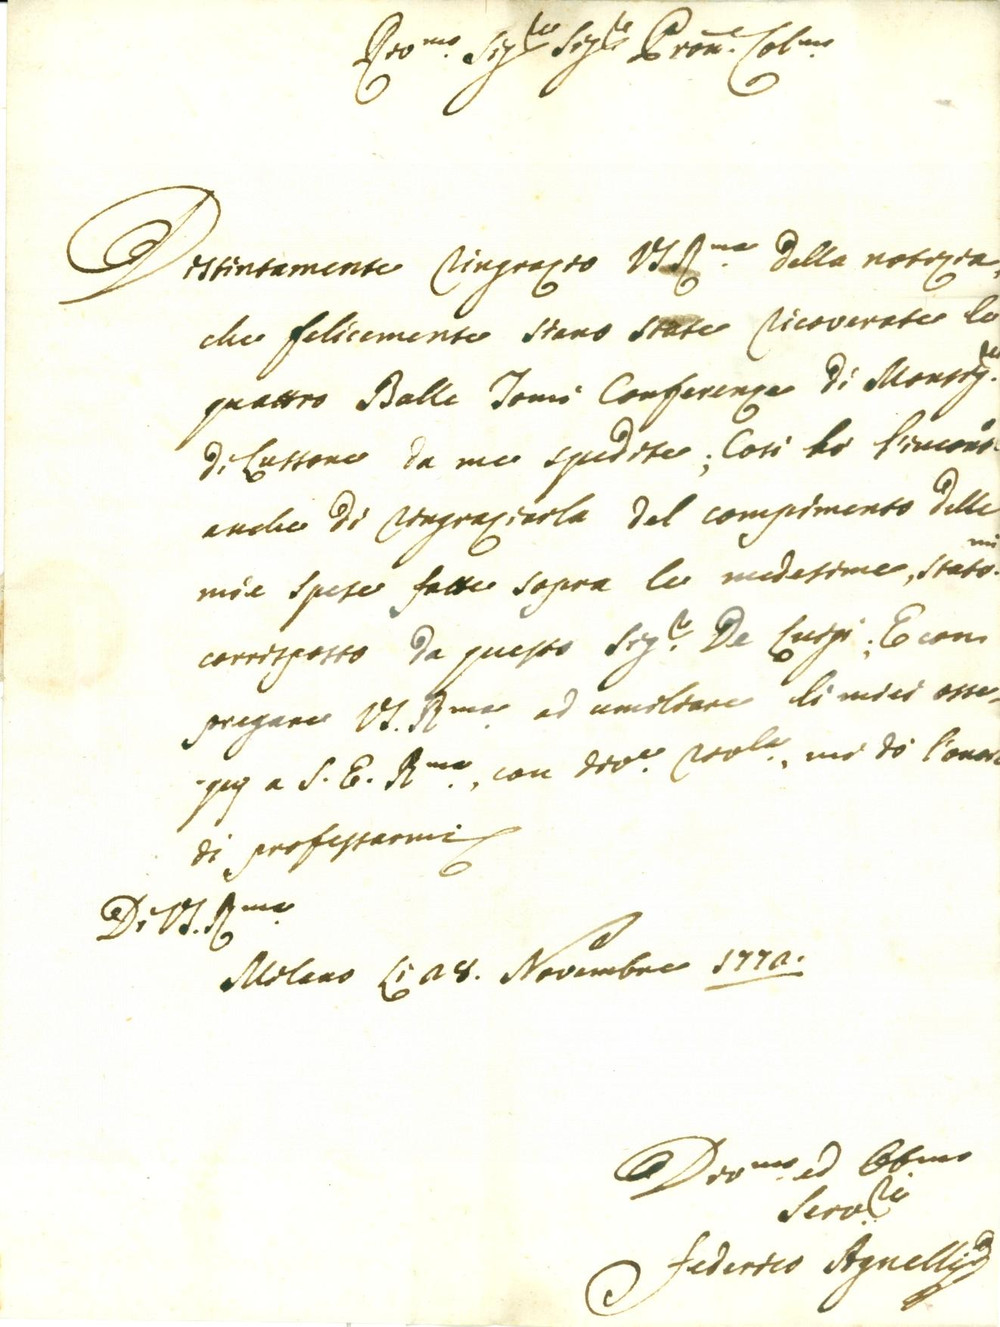 Rev.mo Sig.re Sig.re Pron.e Col.mo
Distintamente ringrazio VS. R.ma della notizia,
che felicemente siano state ricoverate le
quattro Balle Tomi Conferenze di Monsig.r
di Lussone da me spedite; Così hò l'incont.
anche di ringraziarla del compimento delle
mie spese fatte sopra le medesime, statomi
corrisposto da questo Sig.r De Luigi; E con
pregare VS. R.ma ad umiliare li miei osse-
quj a S. E. R.ma, con div.a riv.la, mi dò l'onore
di professarmi
Di VS. R.ma
Milano Li 28. Novembre 1772.
Div.mo ed Obb.mo
Serv.re
Federico Agnelli